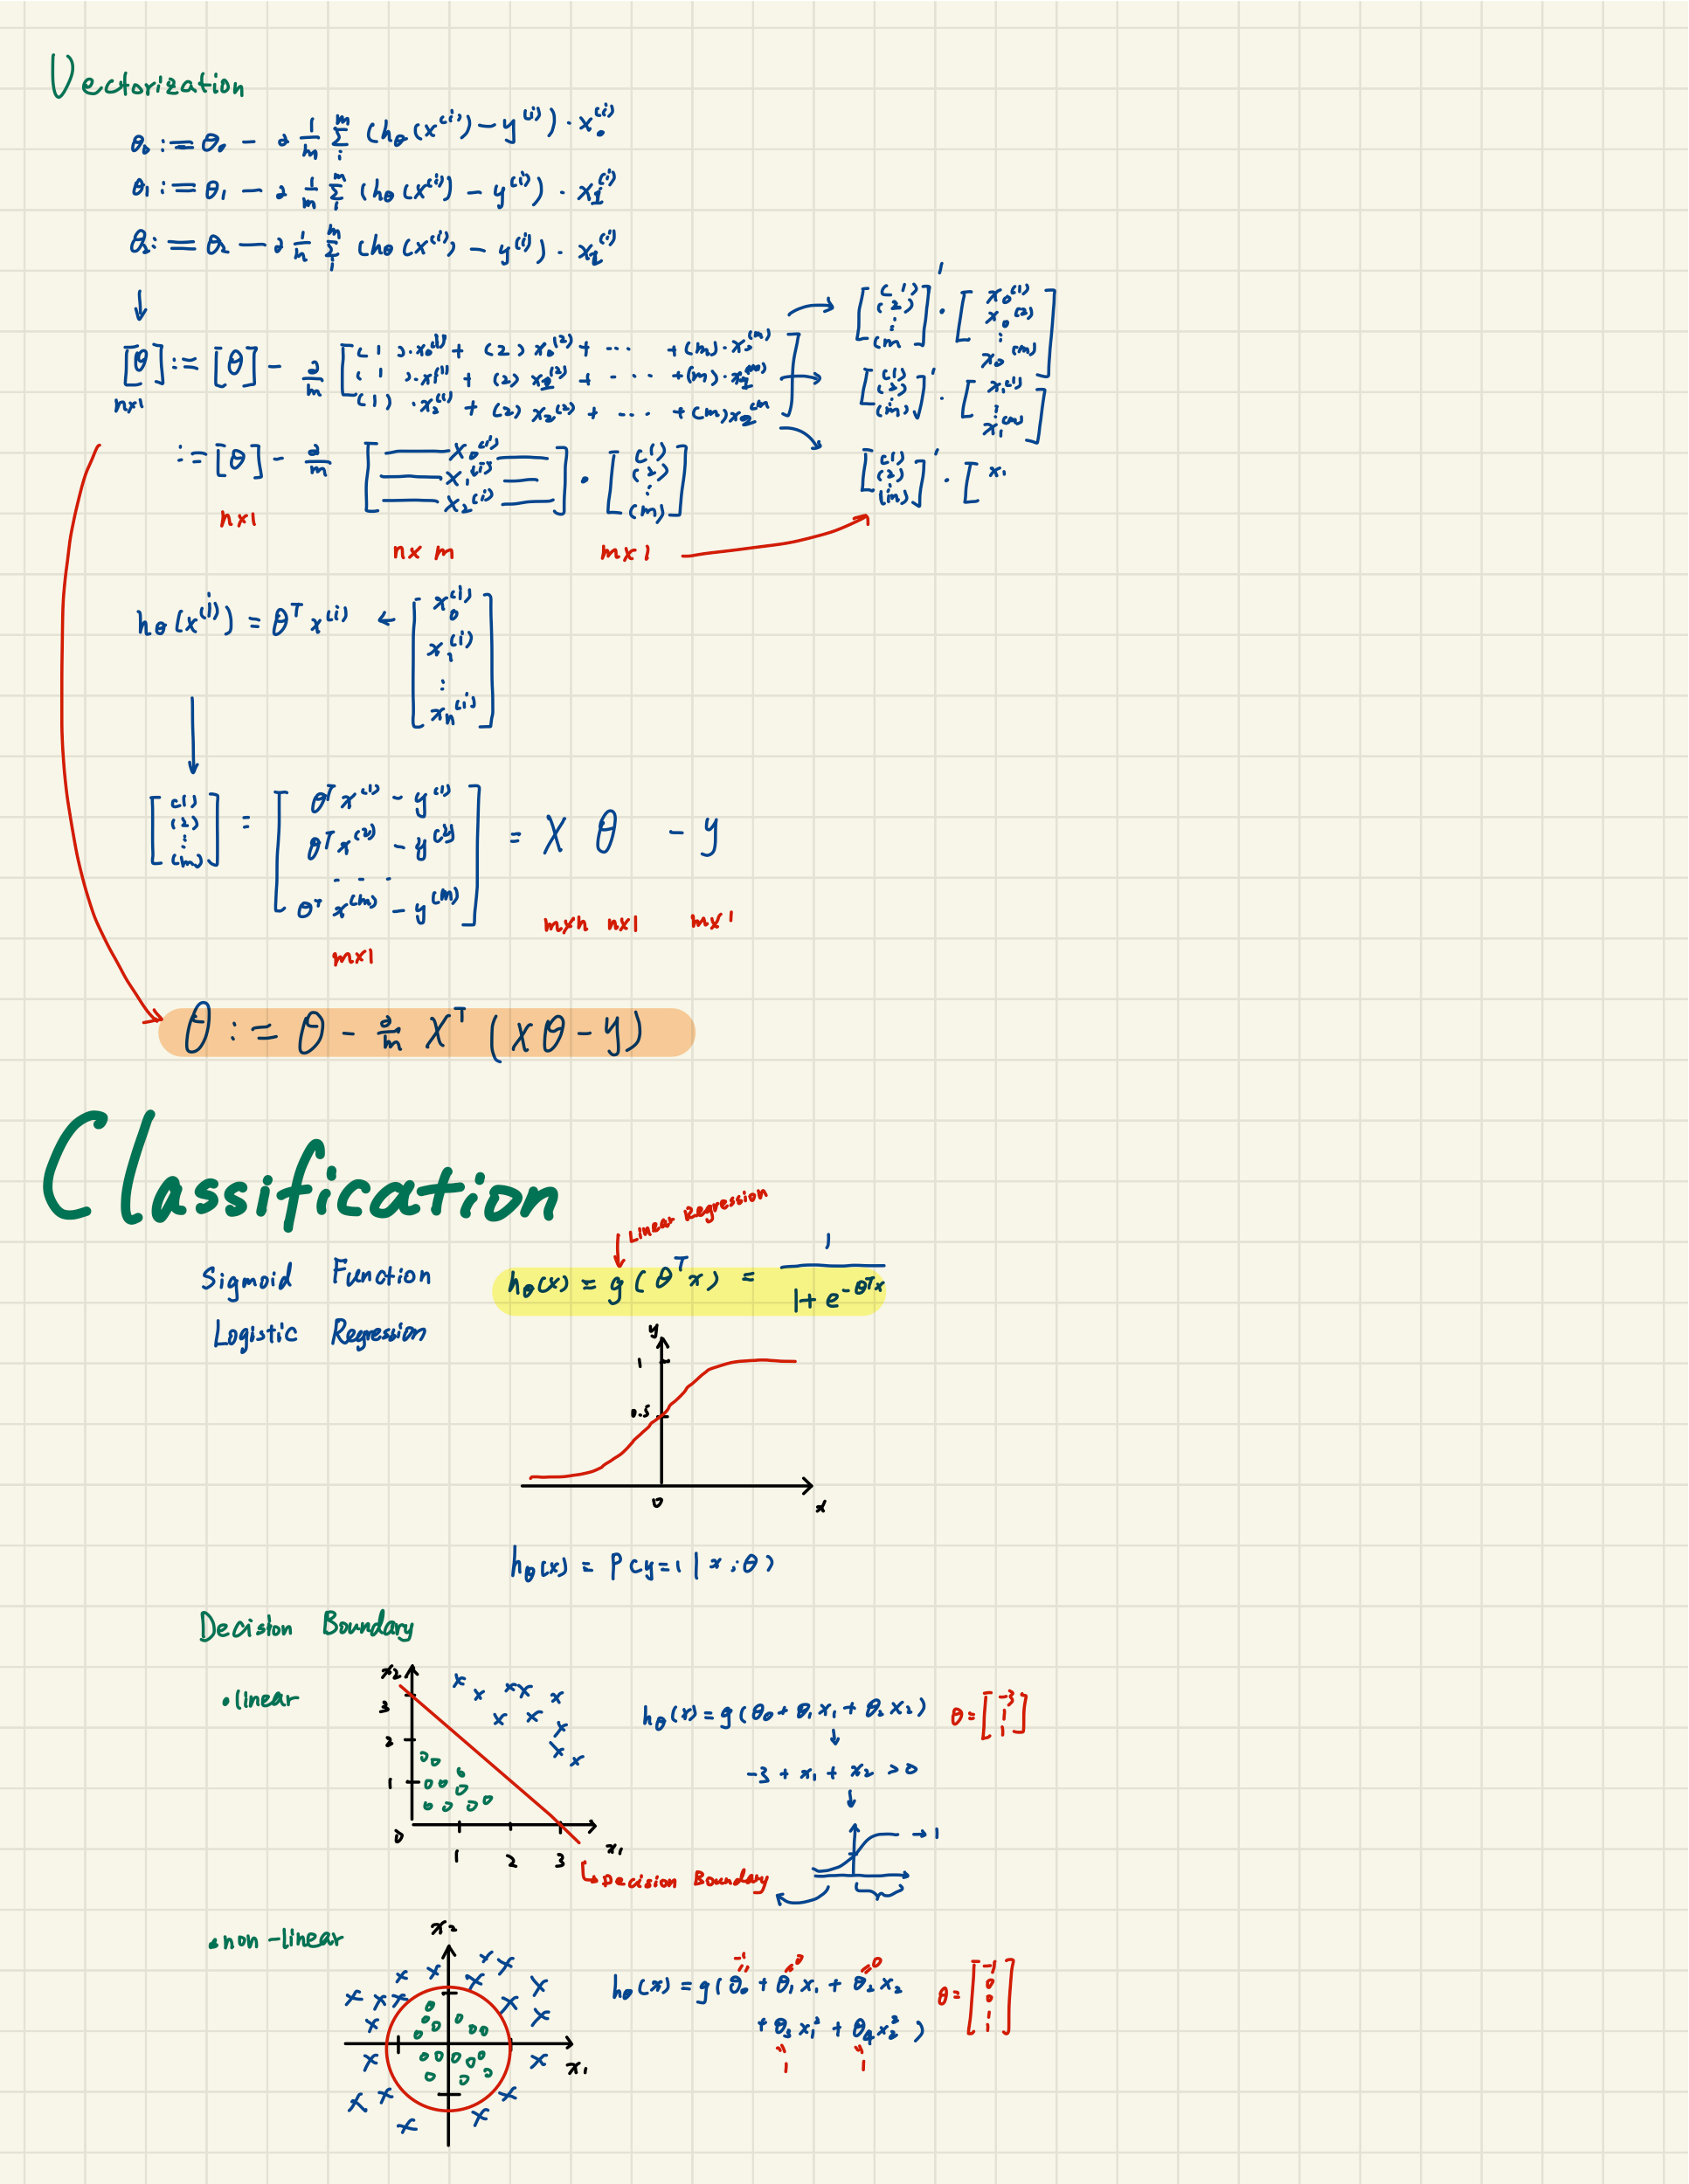 Vectorization
θ₀ := θ₀ - α 1/m Σᵢᵐ (hθ(x⁽ⁱ⁾) - y⁽ⁱ⁾) · x₀⁽ⁱ⁾
θ₁ := θ₁ - α 1/m Σᵢᵐ (hθ(x⁽ⁱ⁾) - y⁽ⁱ⁾) · x₁⁽ⁱ⁾
θ₂ := θ₂ - α 1/m Σᵢᵐ (hθ(x⁽ⁱ⁾) - y⁽ⁱ⁾) · x₂⁽ⁱ⁾
↓
[θ] := [θ] - α/m
n×1
[(1)·x₀⁽¹⁾ + (2) x₀⁽²⁾ + ··· + (m)·x₀⁽ᵐ⁾
(1)·x₁⁽¹⁾ + (2) x₁⁽²⁾ + ··· + (m)·x₁⁽ᵐ⁾
(1)·x₂⁽¹⁾ + (2) x₂⁽²⁾ + ··· + (m) x₂⁽ᵐ⁾]
→ [(1) (2) ⋮ (m)]' · [x₀⁽¹⁾ x₀⁽²⁾ ⋮ x₀⁽ᵐ⁾]
→ [(1) (2) (m)]' · [x₁⁽¹⁾ ⋮ x₁⁽ᵐ⁾]
→ [(1) (2) (m)]' · [x₁
:= [θ] - α/m [x₀⁽ⁱ⁾ x₁⁽ⁱ⁾ x₂⁽ⁱ⁾] · [(1) (2) ⋮ (m)]
n×1 n×m m×1
hθ(x⁽ⁱ⁾) = θᵀx⁽ⁱ⁾ ← [x₀⁽ⁱ⁾ x₁⁽ⁱ⁾ ⋮ xₙ⁽ⁱ⁾]
↓
[(1) (2) ⋮ (m)] = [θᵀx⁽¹⁾ - y⁽¹⁾ θᵀx⁽²⁾ - y⁽²⁾ - - - θᵀx⁽ᵐ⁾ - y⁽ᵐ⁾] = X θ - y
m×n n×1 m×1
m×1
θ := θ - α/m Xᵀ (Xθ - y)
Classification
Linear Regression
Sigmoid Function
hθ(x) = g(θᵀx) = 1/(1 + e^(-θᵀx))
Logistic Regression
y
1
0.5
0
x
hθ(x) = P(y=1 | x; θ)
Decision Boundary
• linear
x₂
3
2
1
0
1 2 3 x₁
Decision Boundary
hθ(x) = g(θ₀ + θ₁x₁ + θ₂x₂) θ = [-3 1 1]
↓
-3 + x₁ + x₂ > 0
↓
→ 1
• non-linear
x₂
x₁
-1 0 0
hθ(x) = g(θ₀ + θ₁x₁ + θ₂x₂ θ = [-1 0 0 1 1]
+ θ₃x₁² + θ₄x₂²)
1 1